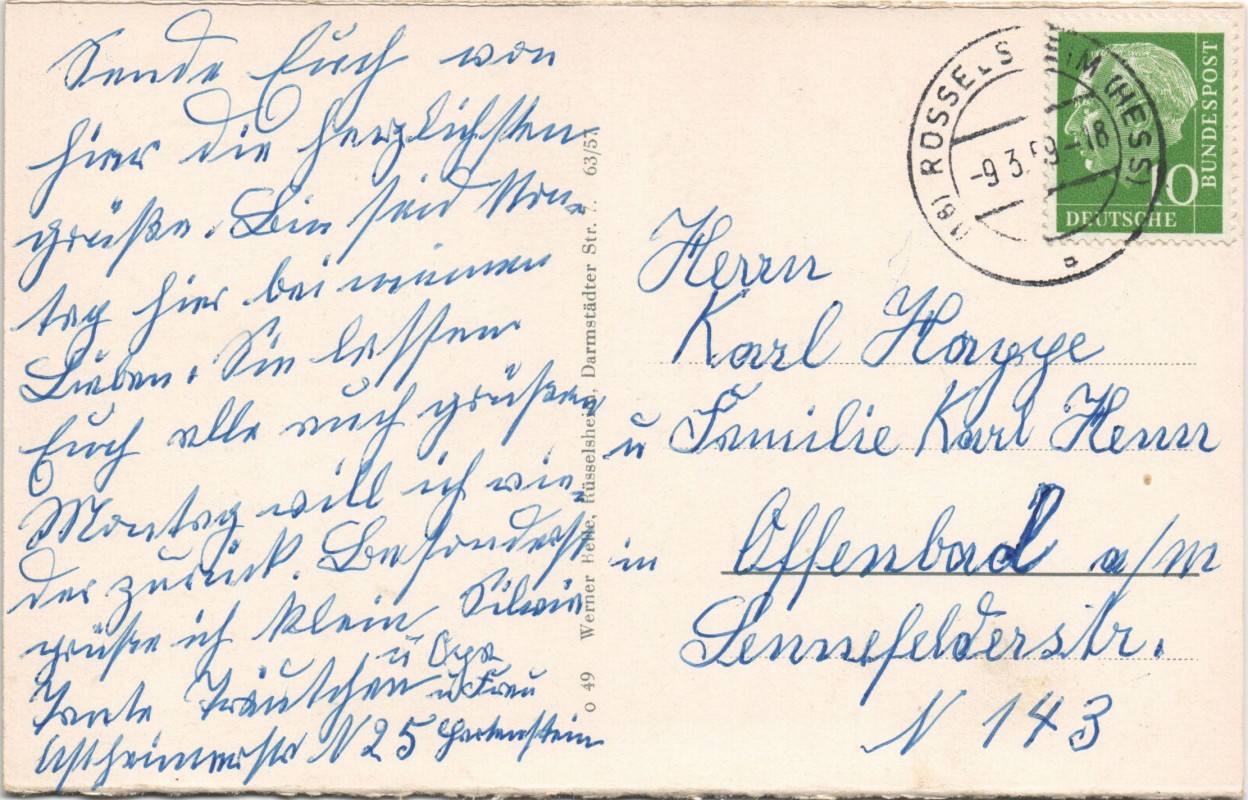 Sende Euch von
hier die herzlichsten
Grüße. Bin seid Mon-
tag hier bei meinen
Lieben. Sie lassen
Euch alle auch grüßen
Montag will ich wie-
der zurück. Besonders
grüße ich klein Silvia
Tante Träutchen
u Opa
u. Frau
Astheimerstr N 25 Hertenstein
o 49 Werner Helle, Rüsselsheim, Darmstädter Str. 63/57
(16) RÜSSELSHEIM (HESS)
-9.3.59-18
a
10
BUNDESPOST
DEUTSCHE
Herrn
Karl Happe
u Familie Karl Henn
in Offenbach a/m
Sennefelderstr.
N 143